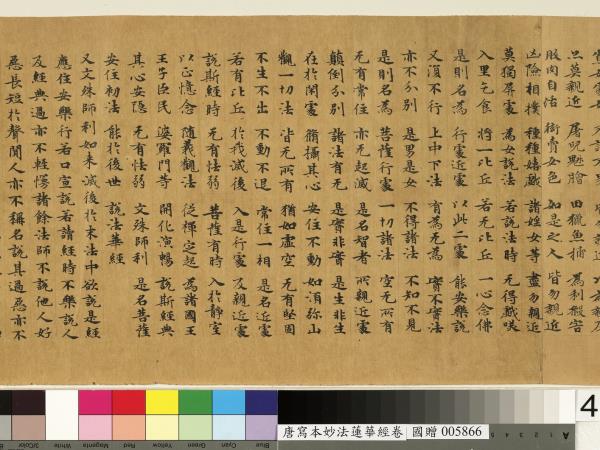 亦莫親近 屠兒魁膾 田獵魚捕 為利殺害
販肉自活 衒賣女色 如是之人 皆勿親近
凶險相撲 種種嬉戲 諸婬女等 盡勿親近
莫獨屏處 為女說法 若說法時 无得戲咲
入里乞食 將一比丘 若无比丘 一心念佛
是則名為 行處近處 以此二處 能安樂說
又復不行 上中下法 有為无為 實不實法
亦不分別 是男是女 不得諸法 不知不見
是則名為 菩薩行處 一切諸法 空无所有
无有常住 亦无起滅 是名智者 所親近處
顛倒分別 諸法有无 是實非實 是生非生
在於閑處 脩攝其心 安住不動 如須弥山
觀一切法 皆无所有 猶如虛空 无有堅固
不生不出 不動不退 常住一相 是名近處
若有比丘 於我滅後 入是行處 及親近處
說斯經時 无有怯弱 菩薩有時 入於靜室
以正憶念 隨義觀法 從禪定起 為諸國王
王子臣民 婆羅門等 開化演暢 說斯經典
其心安隱 无有怯弱 文殊師利 是名菩薩
安住初法 能於後世 說法華經
又文殊師利如來滅後於末法中欲說是經
應住安樂行若口宣說若讀經時不樂說人
及經典過亦不輕慢諸餘法師不說他人好
惡長短於聲聞人亦不稱名說其過惡亦不
3/Color White Magenta Red Yellow Green Cyan Blue
唐寫本妙法蓮華經卷 國贈 005866
A
4